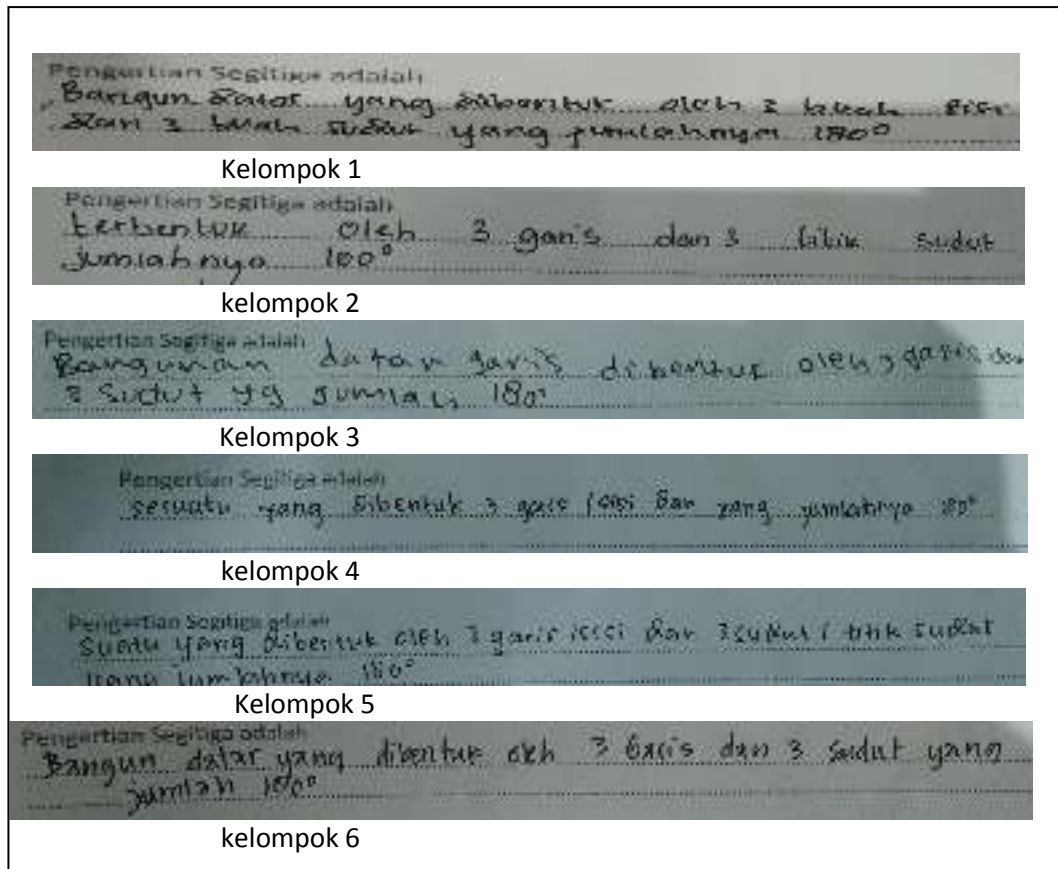 Pengertian Segitiga adalah
Bangun datar yang dibentuk oleh 3 buah sisi
dan 3 buah sudut yang jumlahnya 180°
Kelompok 1
Pengertian Segitiga adalah
terbentuk oleh 3 garis dan 3 titik sudut
jumlahnya 180°
kelompok 2
Pengertian Segitiga adalah
Bangunan datar garis dibentuk oleh 3 garis dan
3 sudut yg jumlah 180°
Kelompok 3
Pengertian Segitiga adalah
sesuatu yang dibentuk 3 garis / sisi dan yang jumlahnya 180°
kelompok 4
Pengertian Segitiga adalah
Suatu yang dibentuk oleh 3 garis / sisi dan 3 sudut / titik sudut
yang jumlahnya 180°
Kelompok 5
Pengertian Segitiga adalah
Bangun datar yang dibentuk oleh 3 Garis dan 3 sudut yang
jumlah 180°
kelompok 6